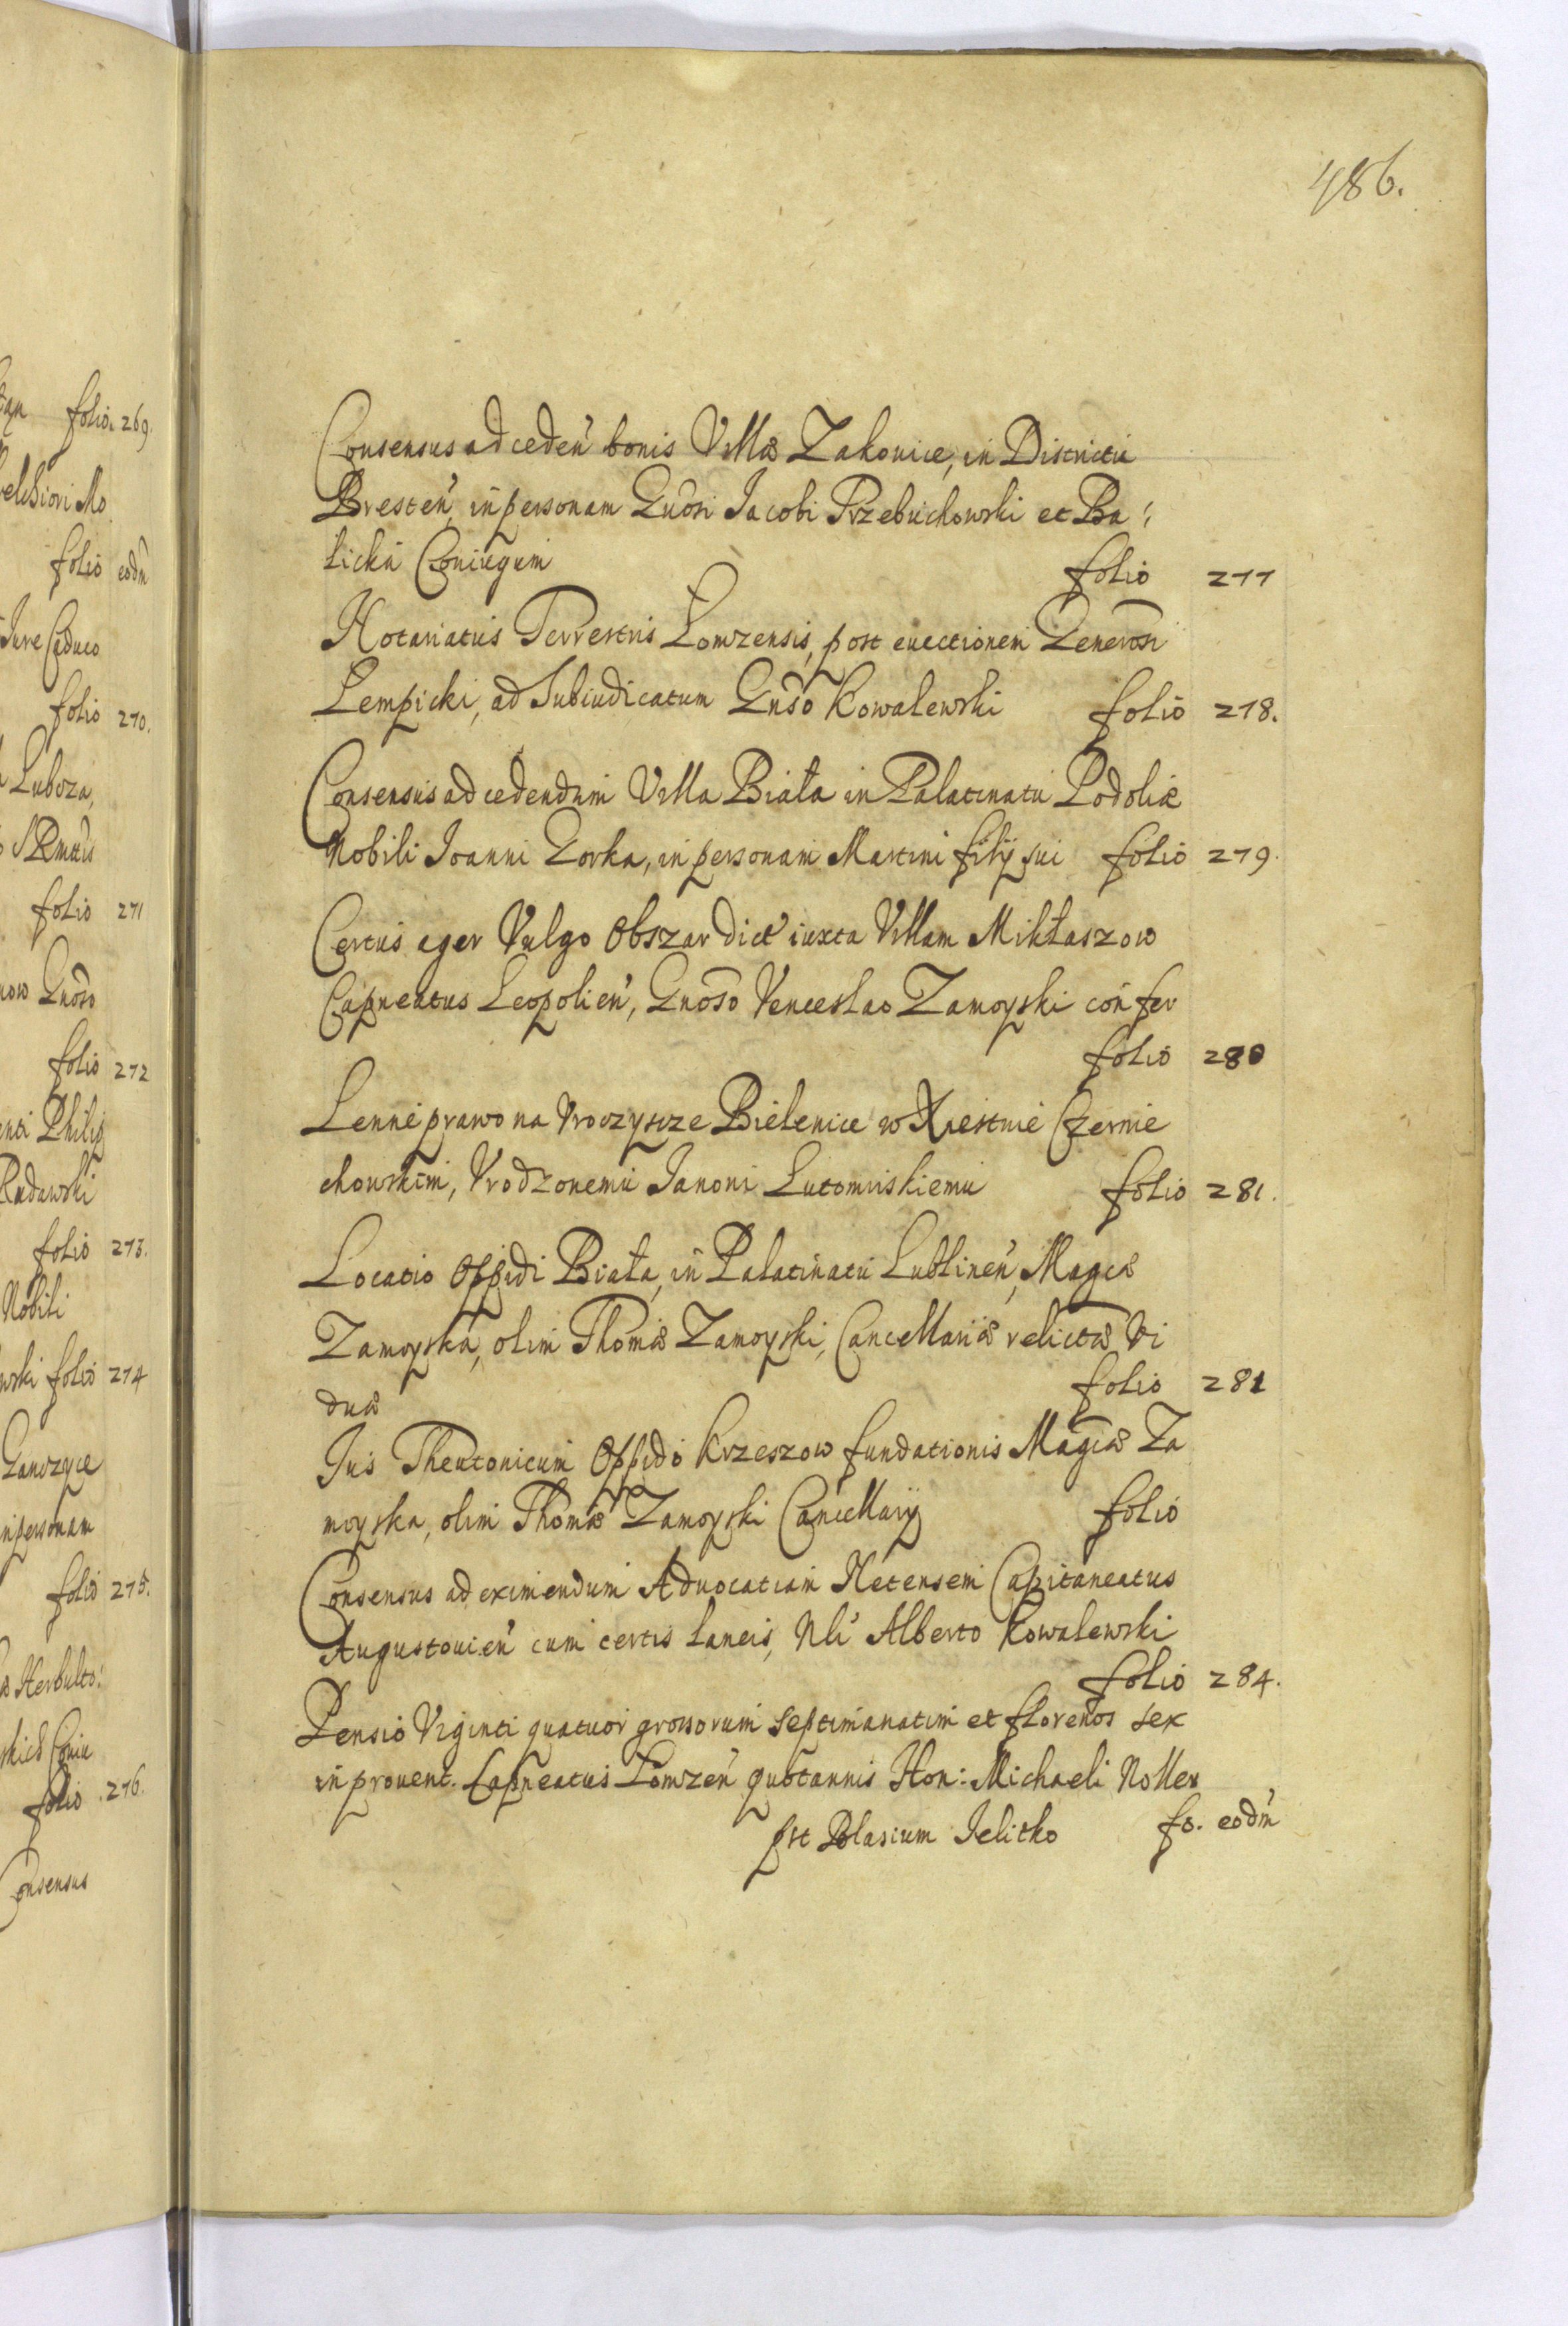 folio. 269.
elchiori Mo
folio eodm̄
Iure Caduco
folio 270.
Lubcza,
folio 271
now Gnōso
folio 272
Philip
Rudawski
folio 273.
Nobili
wski folio 274
in personam
folio 275.
Herbulto:
folio 276.
Consensus
486.
Consensus ad ceden̄ bonis Villæ Zakowice, in Districtu
Bresten̄, in personam Gnōsi Iacobi Przebuchowski et Ba:
licka Coniugum
folio 277
Notariatus Terrestris Lomzensis, post euectionem Generosi
Lempicki, ad Subiudicatum Gnōso Kowalewski folio 278.
Consensus ad cedendum Villa Biała in Palatinatu Podoliæ
Nobili Ioanni Gorka, in personam Martini filij sui folio 279.
Certus ager Vulgo Obszar dict' iuxta Villam Mikłaszow
Capneatus Leopolien̄, Gnōso Venceslao Zamoyski confer
folio 280
Lenne prawo na Vroczyscze Bielenice w Xięstwie Czernie
chowskim, Vrodzonemu Janowi Lutomirskiemu folio 281.
Locatio Oppidi Biała, in Palatinatu Lublinen̄, Magcæ
Zamoyska, olim Thomæ Zamoyski, Cancellariæ relictæ Vi
duæ folio 281
Ius Theutonicum Oppido Krzeszow fundationis Magcæ Za
moyska, olim Thomæ Zamoyski Cancellarij folio
Consensus ad eximendum Aduocatiam Netensem Capitaneatus
Augustouien̄ cum certis laneis, Nli' Alberto Kowalewski
folio 284.
Pensio Viginti quatuor grossorum septimanatim et florenos sex
in prouent. Capneatus Lomzen̄ quotannis Hon: Michaeli Noller
pst Blasium Ielitko fo. eodm̄